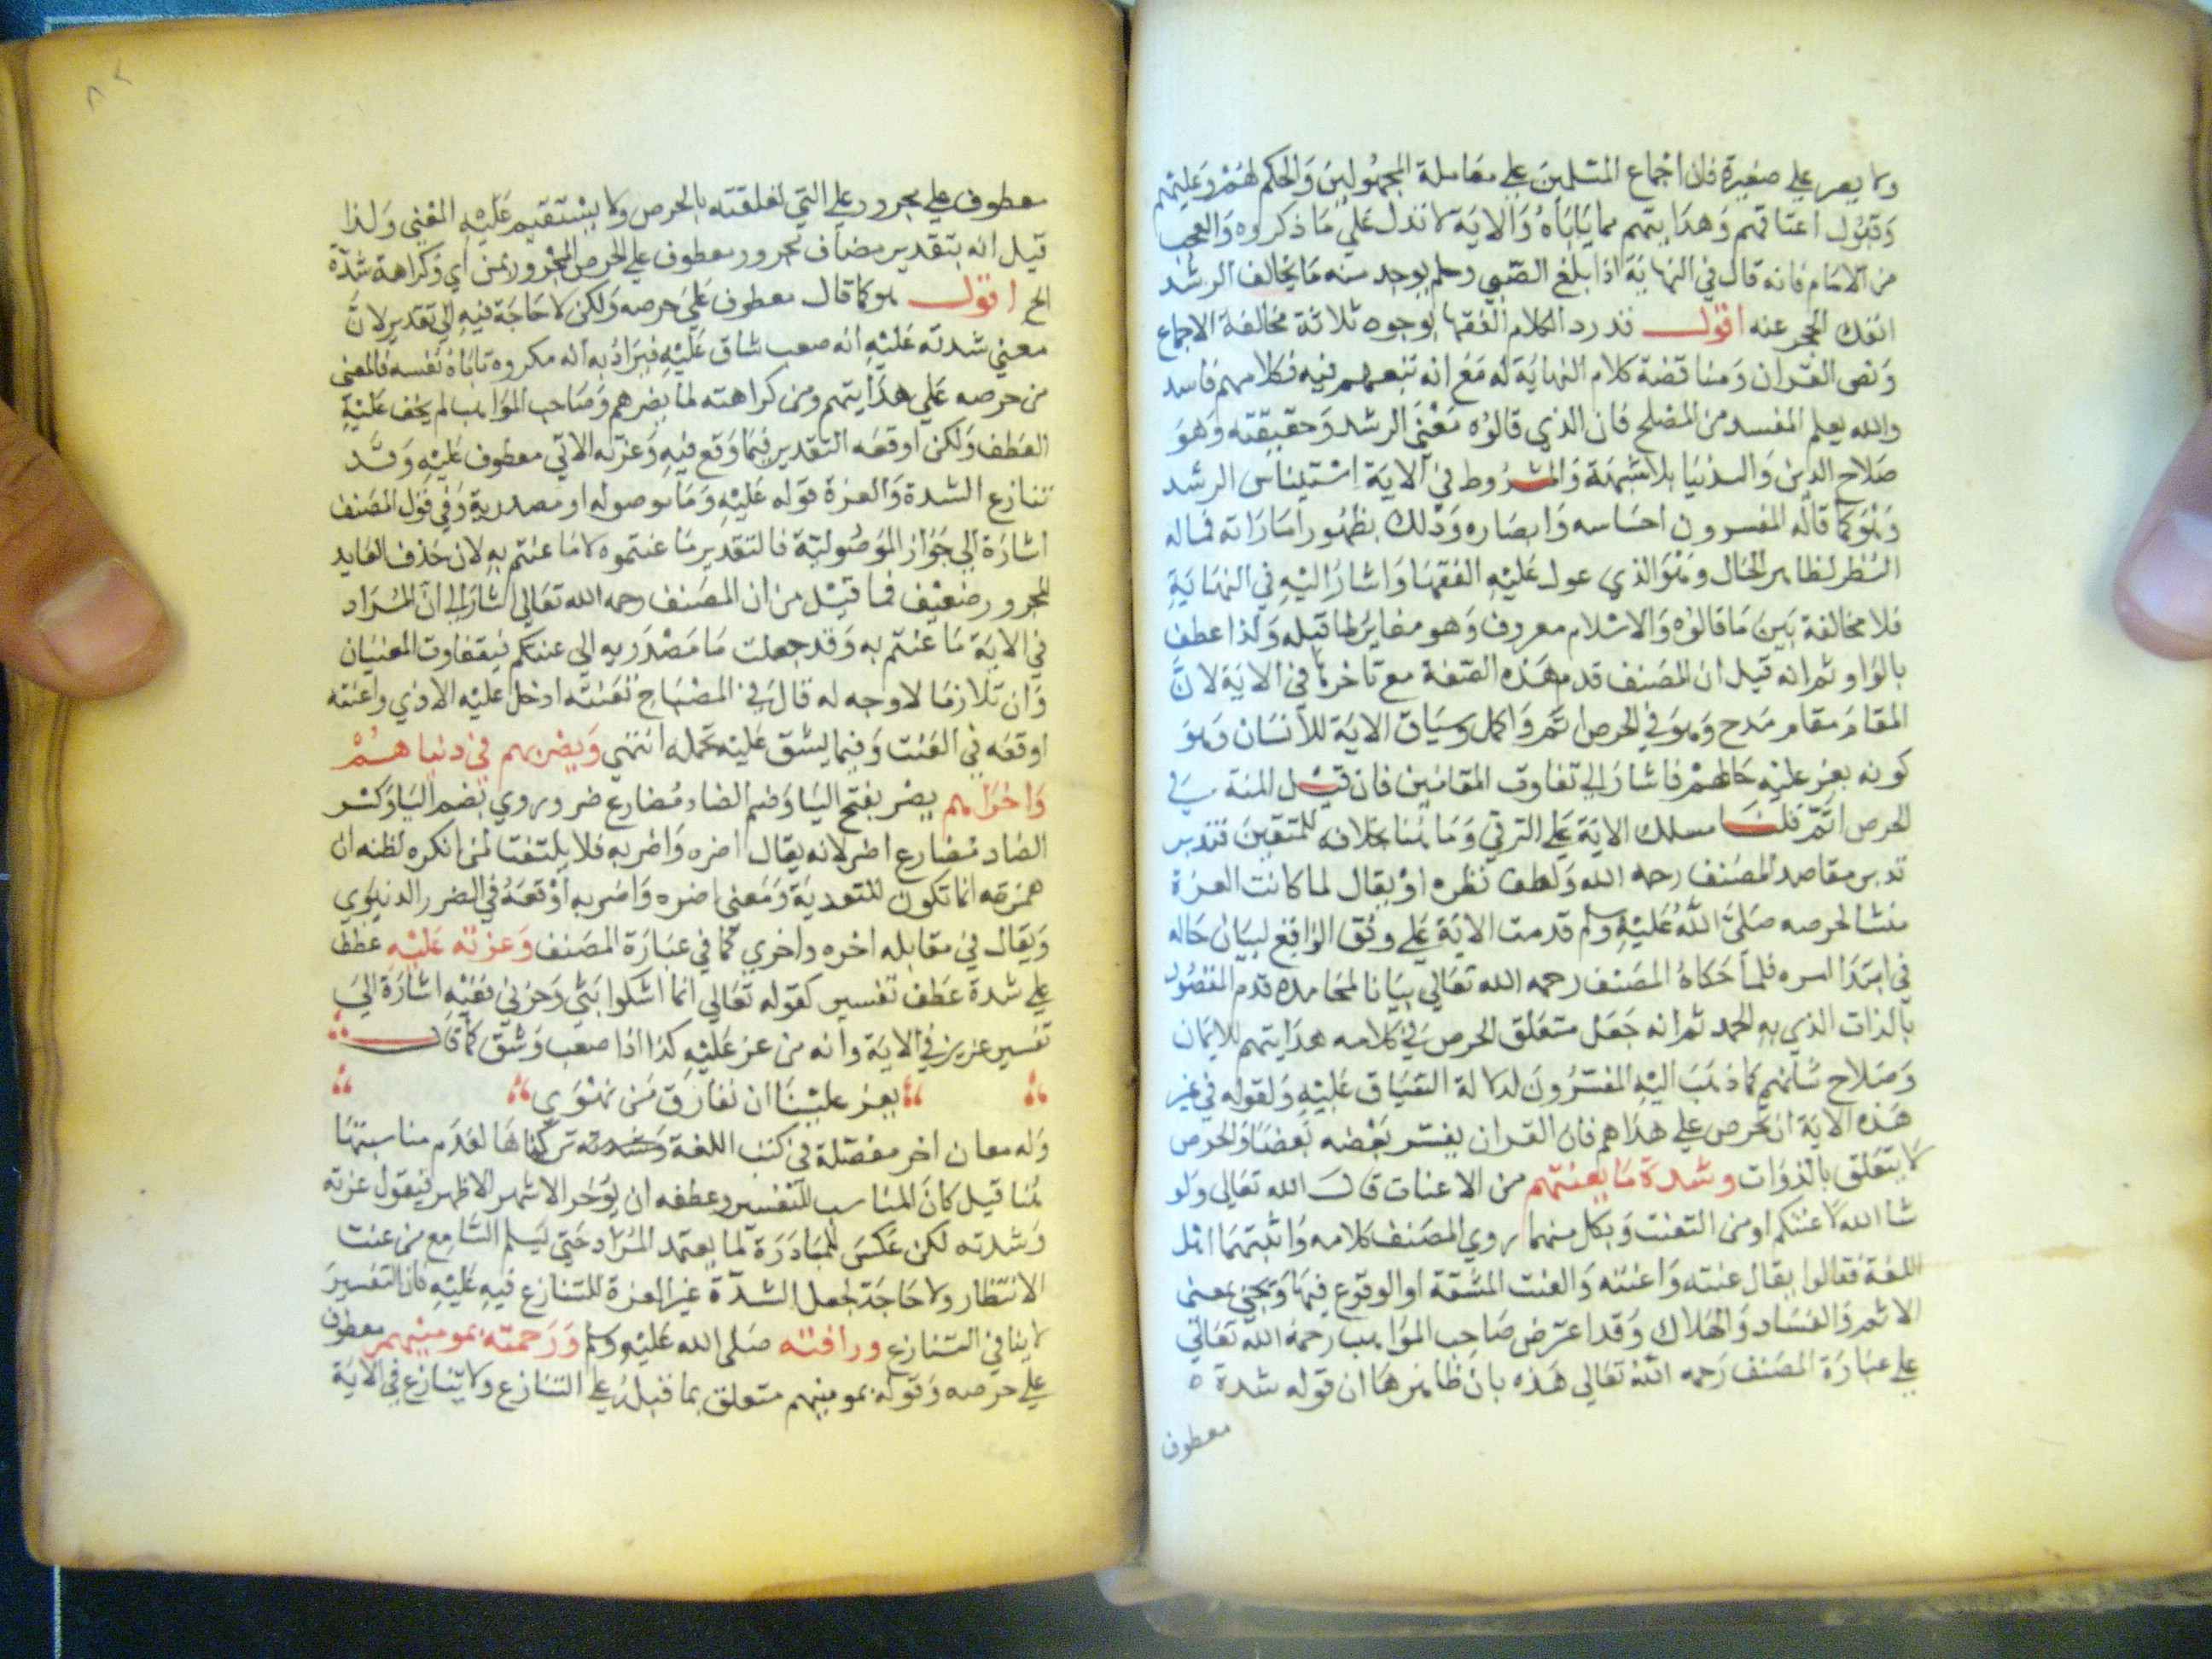 ولا يصر على صغيرة فان اجماع المسلمين على معاملة المجهولين والحكم لهم وعليهم
وقبول اعتاقهم وهدايتهم مما ياباه والاية لا تدل على ما ذكروه والعجب
من الامام فانه قال في النهاية اذا بلغ الصبي ولم يوجد منه ما يخالف الرشد
انفك الحجر عنه اقول قد رد الكلام الفقها بوجوه ثلاثة مخالفة الاجماع
ونص القران ومناقضة كلام النهاية له مع انه تبعهم فيه فكلامهم فاسد
والله يعلم المفسد من المصلح فان الذي قالوه معنى الرشد وحقيقته وهو
صلاح الدين والدنيا بلا شبهة والمشروط في الاية استيناس الرشد
وهو كما قاله المفسرون احساسه وابصاره وذلك بظهور اماراته فماله
النظر لظاهر الحال وهو الذي عول عليه الفقها واشار اليه في النهاية
فلا مخالفة بين ما قالوه والاسلام معروف وهو مغاير لما قبله ولذا عطف
بالواو ثم انه قيل ان المصنف قدم هذه الصفة مع تاخرها في الاية لان
المقام مقام مدح وهو في الحرص اتم واكمل وسياق الاية للانسان وهو
كونه يعز عليه حالهم فاشار الى تفاوت المقامين فان قيل المنة في
الحرص اتم قلنا مسلك الاية على الترقي وما هنا بخلافه للمتقين فتدبر
تدبر مقاصد المصنف رحمه الله ولطف نظره او يقال لما كانت العزة
منشا لحرصه صلى الله عليه وسلم قدمت الاية على وفق الواقع لبيان حاله
في ابتدا امره فلما حكاه المصنف رحمه الله تعالى بيانا لمحامده قدم المقصود
بالذات الذي به الحمد ثم انه جعل متعلق الحرص في كلامه هدايتهم للايمان
وصلاح شانهم كما ذهب اليه المفسرون لدلالة السياق عليه ولقوله في غير
هذه الاية ان تحرص على هداهم فان القران يفسر بعضه بعضا والحرص
لا يتعلق بالذوات وشدة ما يعنتهم من الاعنات قال الله تعالى ولو
شا الله لاعنتكم او من التعنت وبكل منهما روي المصنف كلامه واثبتهما اهل
اللغة فقالوا يقال عنته واعنته والعنت المشقة او الوقوع فيها ويجي بمعنى
الاثم والفساد والهلاك وقد اعترض صاحب المواهب رحمه الله تعالى
على عبارة المصنف رحمه الله تعالى هذه بان ظاهرها ان قوله شدة ه
معطوف
معطوف على مجرور على التي لعلقته بالحرص ولا يستقيم عليه المعنى ولذا
قيل انه بتقدير مضاف مجرور معطوف على الحرص المجرور بمن اي وكراهة شدة
الخ اقول هو كما قال معطوف على حرصه ولكن لا حاجة فيه الى تقدير لان
معنى شدته عليه انه صعب شاق عليه فيراد به انه مكروه تاباه نفسه فالمعنى
من حرصه على هدايتهم ومن كراهته لما يضرهم وصاحب المواهب لم يخف عليه
العطف ولكن اوقعه التقدير فيما وقع فيه وعزته الاتي معطوف عليه وقد
تنازع الشدة والعزة قوله عليه وما موصوله او مصدرية وفي قول المصنف
اشارة الى جواز الموصولية فالتقدير ما عنتموه لا ما عنتم به لان حذف العايد
المجرور ضعيف فما قيل من ان المصنف رحمه الله تعالى اشار الى ان المراد
في الاية ما عنتم به وقد جعلت ما مصدريه الى عنتكم فيتفاوت المعنيان
وان تلازما لا وجه له قال في المصباح تعنته ادخل عليه الاذي واعنته
اوقعه في العنت وفيما يشق عليه تحمله انتهي ويضربهم في دنياهم
واخراهم يضر بفتح اليا وضم الضاد مضارع ضر وروي بضم اليا وكسر
الضاد مضارع اضر لانه يقال اضره واضر به فلا يلتفت لمن انكره لظنه ان
همزته انما تكون للتعدية ومعنى اضره واضر به اوقعه في الضرر الدنيوي
ويقال في مقابله اخره واخري كما في عبارة المصنف وعزته عليه عطف
على شدة عطف تفسير كقوله تعالى انما اشكوا بثي وحزني ففيه اشارة الى
تفسير عزيز في الاية وانه من عز عليه كذا اذا صعب وشق كما قال
يعز علينا ان نفارق من نهوي
وله معان اخر مفصلة في كتب اللغة تركناها لعدم مناسبتها
هنا قيل كان المناسب للتفسير وعطفه ان يوخر الاشهر الاظهر فيقول عزته
وشدته لكن عكس للمبادرة لما يعتمد المراد حتى يسلم السامع من عنت
الانتظار ولا حاجة لجعل الشدة غير العزة للتنازع فيه عليه فان التفسير
لا ينافي التنازع ورافته صلى الله عليه وسلم ورحمته بمومنيهم معطوف
على حرصه وقوله بمومنيهم متعلق بما قبله على التنازع ولا يتنازع في الاية